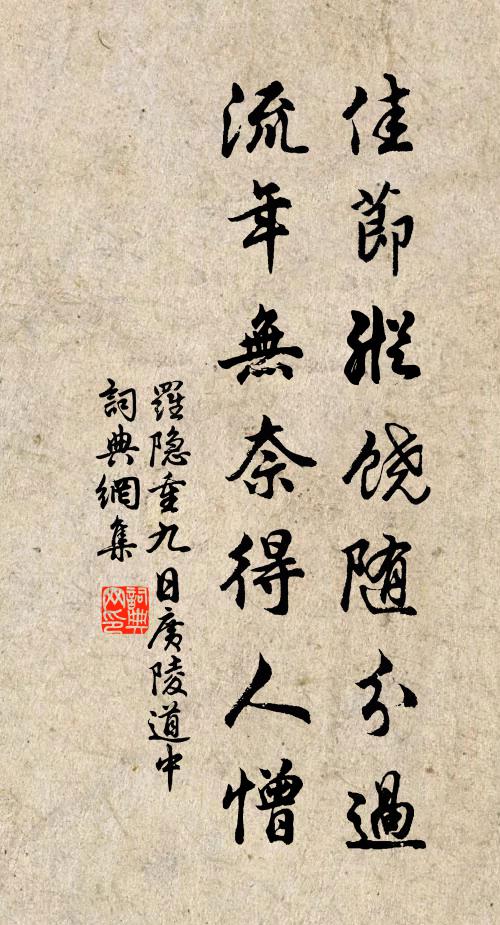 佳節縱饶随分過
流年無奈得人憎
羅隐重九日廣陵道中
詞典網集
詞典网印